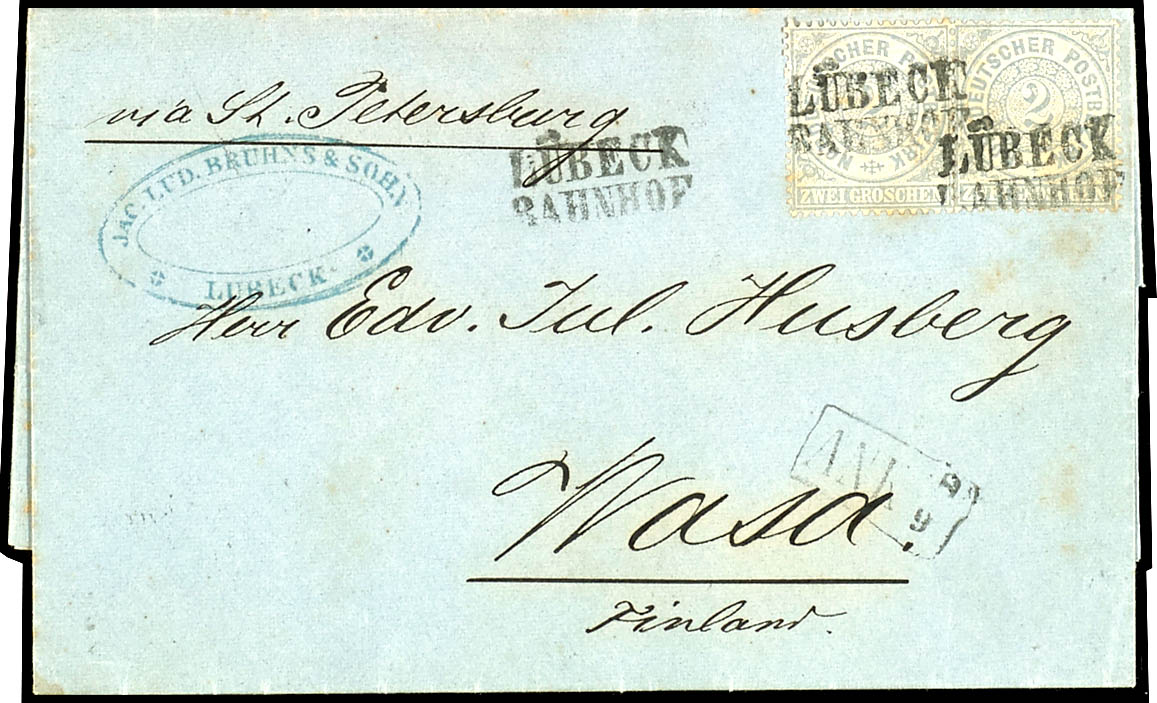 via St. Petersburg
LÜBECK
BAHNHOF
JAC. LUD. BRUHNS & SOHN
LÜBECK
LÜBECK
BAHNHOF
LÜBECK
BAHNHOF
DEUTSCHER POSTB
2
ZWEI GROSCHEN
Herr Edv. Jul. Husberg
Wasa.
Finland.
ANK
9